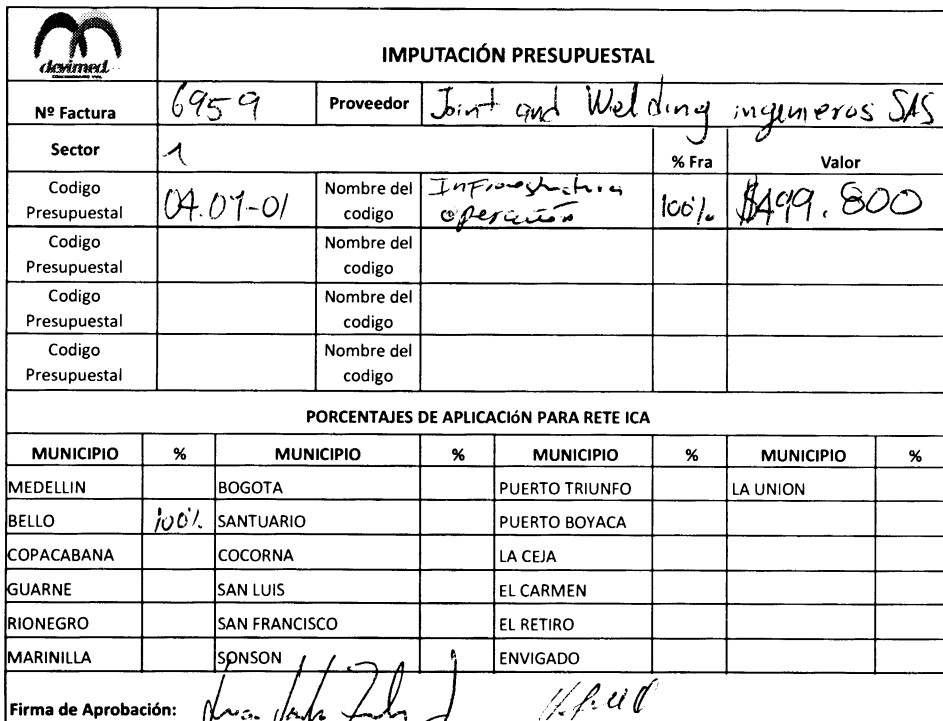 devimed
IMPUTACIÓN PRESUPUESTAL
Nº Factura 6959 Proveedor Joint and Welding ingenieros SAS
Sector 1 % Fra Valor
Codigo Presupuestal 04.07-01 Nombre del codigo Infraestructura operación 100% $499.800
Codigo Presupuestal Nombre del codigo
Codigo Presupuestal Nombre del codigo
Codigo Presupuestal Nombre del codigo
PORCENTAJES DE APLICACIÓN PARA RETE ICA
MUNICIPIO % MUNICIPIO % MUNICIPIO % MUNICIPIO %
MEDELLIN BOGOTA PUERTO TRIUNFO LA UNION
BELLO 100% SANTUARIO PUERTO BOYACA
COPACABANA COCORNA LA CEJA
GUARNE SAN LUIS EL CARMEN
RIONEGRO SAN FRANCISCO EL RETIRO
MARINILLA SONSON ENVIGADO
Firma de Aprobación: